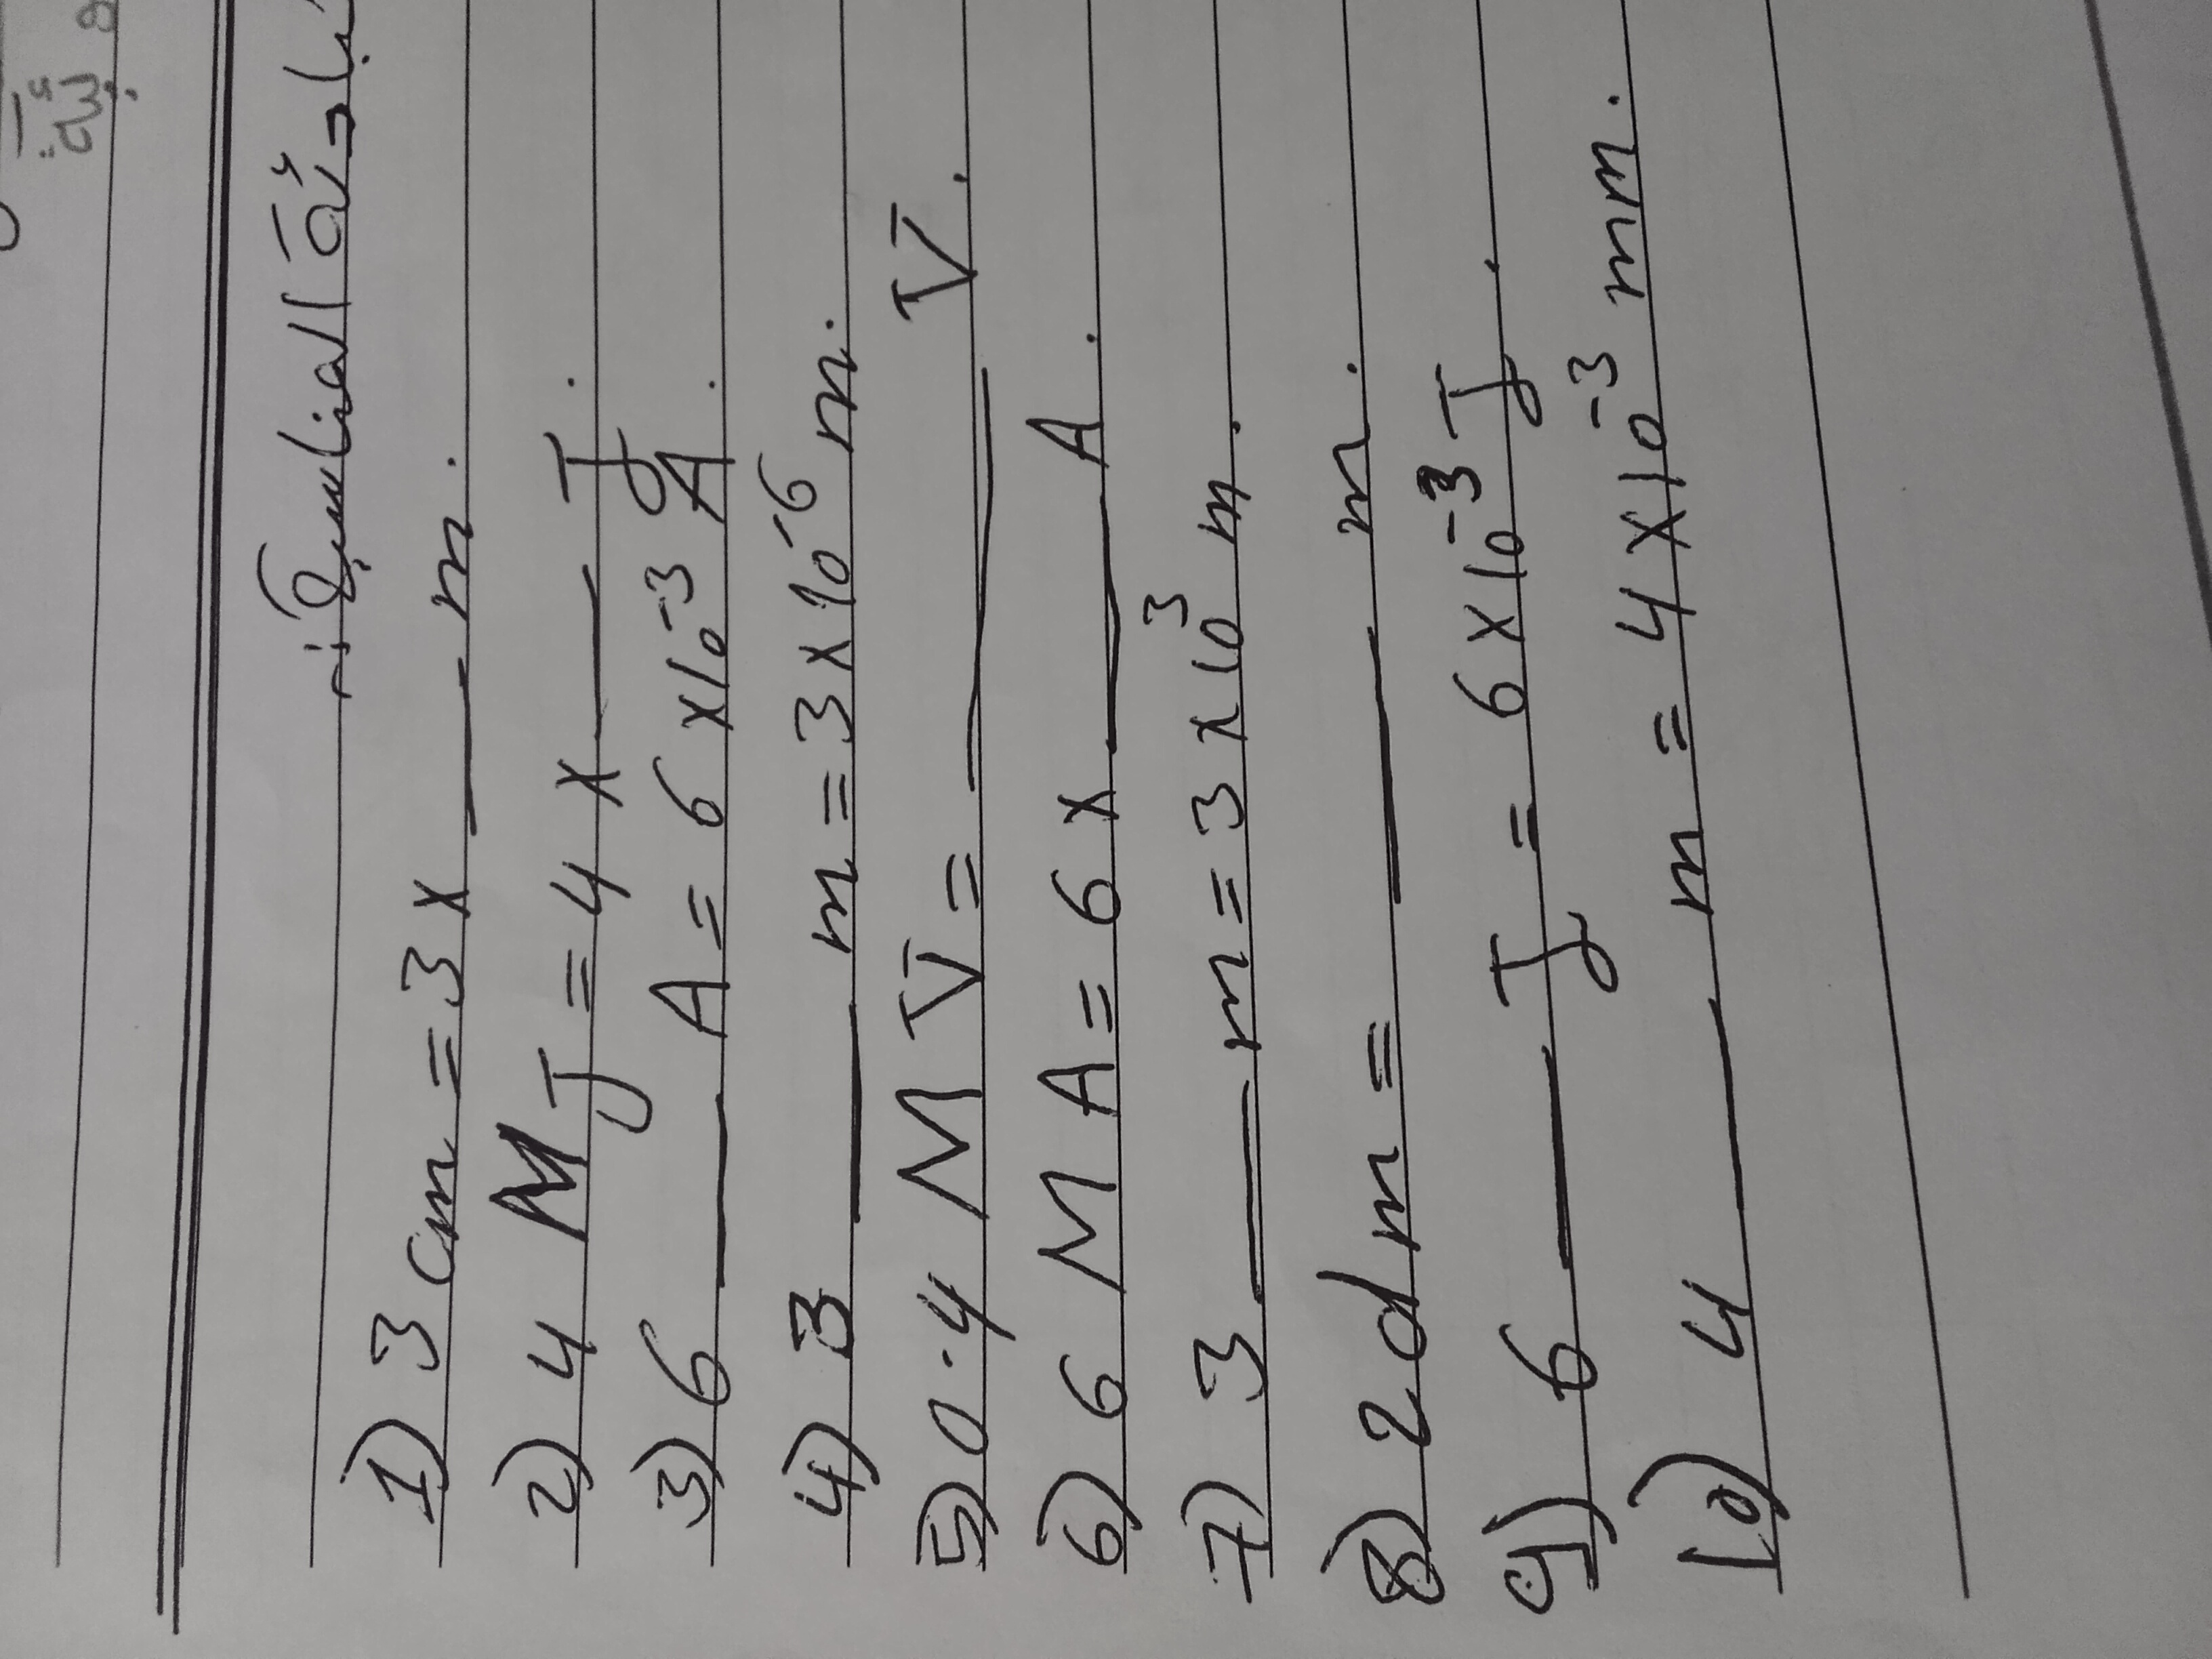 1) 3 cm = 3 x ___ m.
2) 4 MJ = 4 x ___ J.
3) 6 ___ A = 6 x 10⁻³ A.
4) 3 ___ m = 3 x 10⁻⁶ m.
5) 0.4 M V = ___ V.
6) 6 M A = 6 x ___ A.
7) 3 ___ m = 3 x 10³ m.
8) 2 dm = ___ m.
9) 6 ___ J = 6 x 10⁻³ J.
10) 4 ___ m = 4 x 10⁻³ mm.